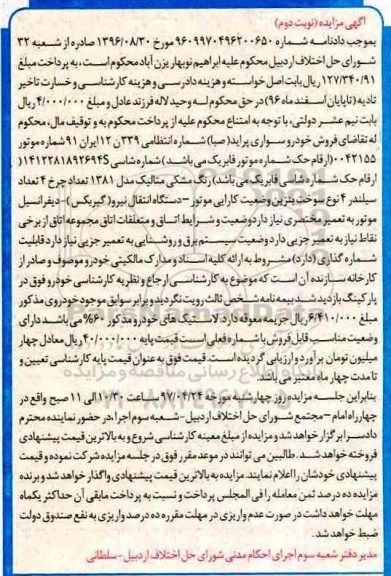 آگهی مزایده (نوبت دوم)
بموجب دادنامه شماره ۹۶۰۹۹۷۰۴۹۶۲۰۰۶۵۰ مورخ ۱۳۹۶/۰۸/۳۰ صادره از شعبه ۳۲
شورای حل اختلاف اردبیل محکوم علیه ابراهیم نوبهار یزن آباد محکوم است، به پرداخت مبلغ
۱۲۷/۳۴۰/۹۱ ریال بابت اصل خواسته و هزینه دادرسی و هزینه کارشناسی و خسارت تاخیر
تادیه (تا پایان اسفند ماه ۹۶) در حق محکوم لـه وحید لاله فرزند عادل و مبلغ ۴/۰۰۰/۰۰۰ ریال
بابت نیم عشر دولتی، با توجه به امتناع محکوم علیه از پرداخت محکوم به و توقیف مال، محکوم
له تقاضای فروش خودرو سواری پراید (صبا) شماره انتظامی ۳۳۹ ن ۱۲ ایران ۹۱ شماره موتور
۰۰۴۲۱۵۵ (ارقام حک شماره موتور فابریک می باشد) شماره شاسی S۱۴۱۲۲۸۱۸۹۲۶۹۴ (
ارقام حک شماره شاسی فابریک می باشد) رنگ مشکی متالیک مدل ۱۳۸۱ تعداد چرخ ۴ تعداد
سیلندر ۴ نوع سوخت بنزین وضعیت کارایی موتور – دستگاه انتقال نیرو (گیربکس) – دیفرانسیل
موتور به تعمیر مختصری نیاز دارد وضعیت و شرایط اتاق و متعلقات اتاق مجموعه اتاق از برخی
نقاط نیاز به تعمیر جزیی دارد وضعیت سیستم برق و روشنایی به تعمیر جزیی نیاز دارد قابلیت
شماره گذاری (دارد) مشروط به ارائه کلیه اسناد و مدارک مالکیتی خودرو موصوف و صادر از
کارخانه سازنده آن است که موضوع به کارشناسی ارجاع و نظریه کارشناسی خودرو فوق در
پارکینگ بازدید شد بیمه نامه شخص ثالث رویت نگردید و برابر سوابق موجود خودروی مذکور
مبلغ ۶/۴۱۰/۰۰۰ ریال جریمه معوقه دارد. لاستیک های خودرو مذکور ۶۰% می باشد دارای
وضعیت مناسب قابل فروش با شماره فعلی است قیمت پایه ۴۰/۰۰۰/۰۰۰ ریال معادل چهار
میلیون تومان برآورد و ارزیابی گردیده است. قیمت فوق به عنوان قیمت پایه کارشناسی تعیین و
تا مدت چهار ماه معتبر می باشد.
بنابراین جلسه مزایده روز چهارشنبه مورخه ۹۷/۰۴/۲۴ ساعت ۱۰/۳۰ الی ۱۱ صبح واقع در
چهارراه امام – مجتمع شورای حل اختلاف اردبیل – شعبه سوم اجرا، در حضور نماینده محترم
دادسرا برگزار خواهد شد و مزایده از مبلغ معینه کارشناسی شروع و به بالاترین قیمت پیشنهادی
فروخته خواهد شد. طالبین می توانند در موعد مقرر فوق در جلسه مزایده شرکت نموده و قیمت
پیشنهادی خودشان را اعلام نمایند. مزایده به بالاترین قیمت پیشنهادی واگذار خواهد شد و برنده
مزایده ده درصد ثمن معامله را فی المجلس پرداخت و نسبت به پرداخت مابقی آن حداکثر یکماه
مهلت خواهد داشت در صورت عدم واریزی در مهلت مقرره ده درصد واریزی به نفع صندوق دولت
ضبط خواهد شد.
مدیر دفتر شعبه سوم اجرای احکام مدنی شورای حل اختلاف اردبیل – سلطانی